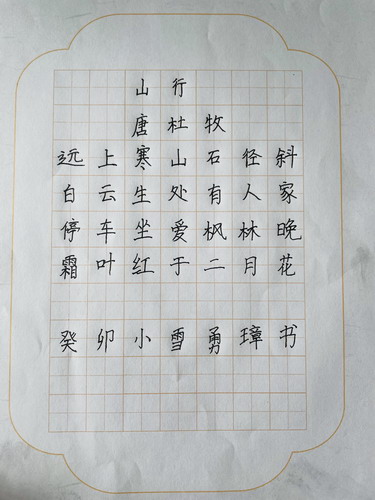 山行
唐杜牧
远上寒山石径斜
白云生处有人家
停车坐爱枫林晚
霜叶红于二月花
癸卯小雪勇璋书